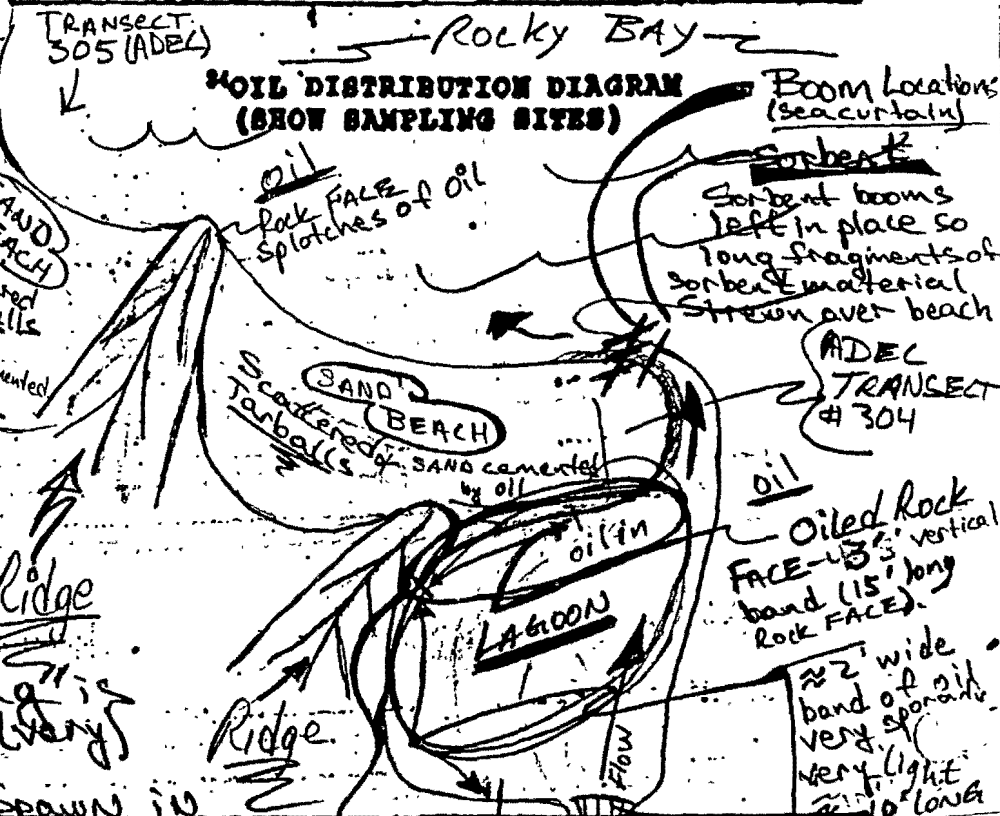 TRANSECT
305 (ADEL)
ROCKY BAY
OIL DISTRIBUTION DIAGRAM
(SHOW SAMPLING SITES)
Boom Locations
(seacurtain)
Sorbent
Sorbent booms
left in place so
long fragments of
sorbent material
strewn over beach
oil
Rock FACE
splotches of oil
SAND
BEACH
ADEC
TRANSECT
#304
SAND
BEACH
Scattered
Tarballs
SAND cemented
by oil
oil
oil in
LAGOON
Oiled Rock
FACE vertical
band (15' long
Rock FACE).
≈2' wide
band of oil
very sporadic
very light
LONG
Ridge
Ridge
Flow
DRAWN IN